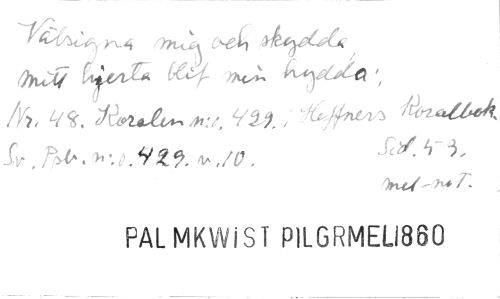 Välsigna mig och skydda,
mitt hjerta blif min hydda;
Nr. 48. Koralen n:o. 429. i Hæffners Koralbok.
Sv. Psb. n:o. 429. v. 10. Sid. 53.
mel-not.
PALMKWiST PILGRMEL1860